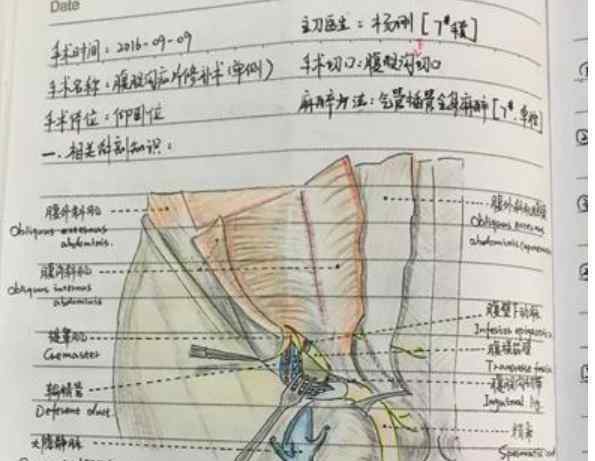 Date
手术时间：2016-09-09
主刀医生：杨刚 [7#手术]
手术名称：腹股沟疝片修补术（单侧）
手术切口：腹股沟切口
手术体位：仰卧位
麻醉方法：气管插管全身麻醉 [7#.
一、相关解剖知识：
腹外斜肌
Obliquus externus
abdominis.
腹内斜肌
Obliquus internus
abdominis
提睾肌
Cremaster
输精管
Deferent duct.
大隐静脉
腹外斜肌腱膜
Obliquus externus
abdominis (aponeuro
腹壁下动脉
Inferior epigastric
腹横筋膜
Transverse fascia
腹股沟韧带
Inguinal lig.
精索
Spermatic cord